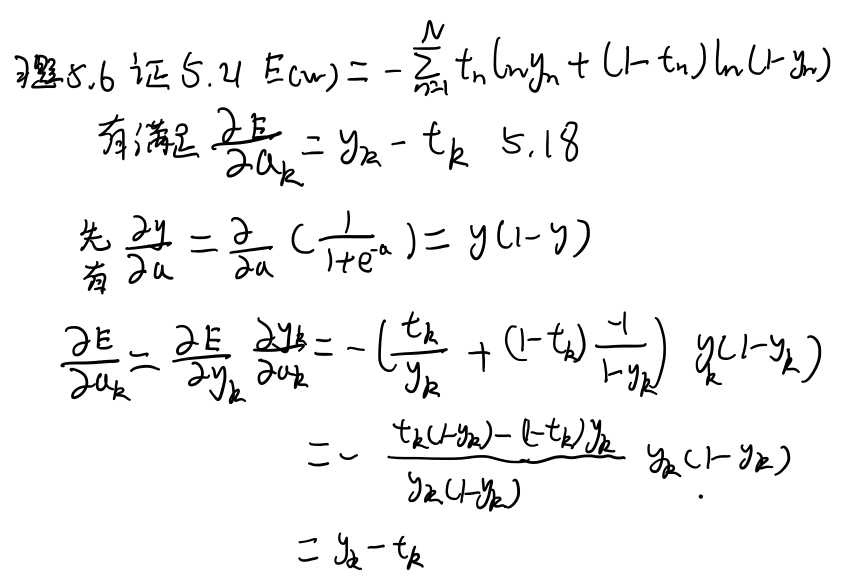 习题5.6 证 5.21 E(w) = -∑_{n=1}^{N} t_n ln y_n + (1-t_n) ln (1-y_n)
有满足 ∂E/∂a_k = y_k - t_k 5.18
先有 ∂y/∂a = ∂/∂a (1/(1+e^{-a})) = y(1-y)
∂E/∂a_k = ∂E/∂y_k ∂y_k/∂a_k = -(t_k/y_k + (1-t_k) -1/(1-y_k)) y_k(1-y_k)
= - (t_k(1-y_k) - (1-t_k)y_k)/(y_k(1-y_k)) y_k(1-y_k)
= y_k - t_k